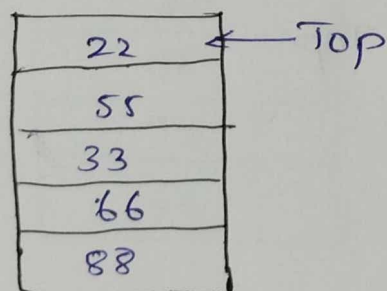 22 Top
55
33
66
88